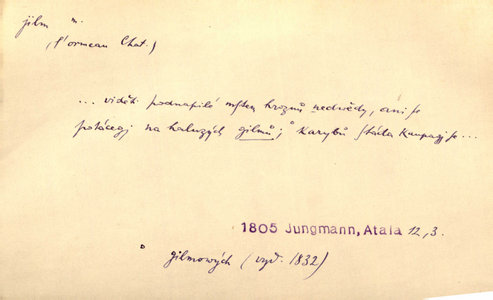 jilm m.
(l'ormeau Chat.)
... viděti podnapilé mſtem hroznů nedwědy, ani ſe
potácegj na haluzých gilmů; ° Karybů ſtáda kaupagj ſe...
1805 Jungmann, Atala 12,3.
° gilmowých (vyd. 1832)